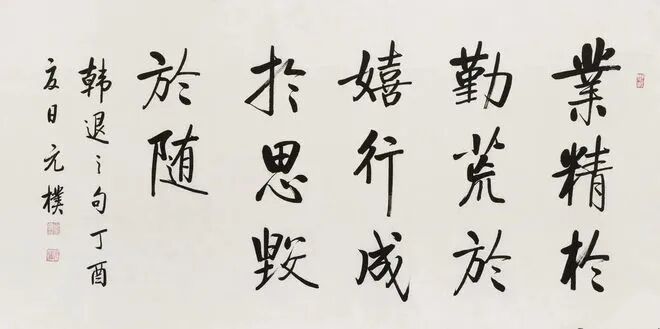 業精於
勤荒於
嬉行成
於思毀
於随
韩退之句丁酉
夏日元樸